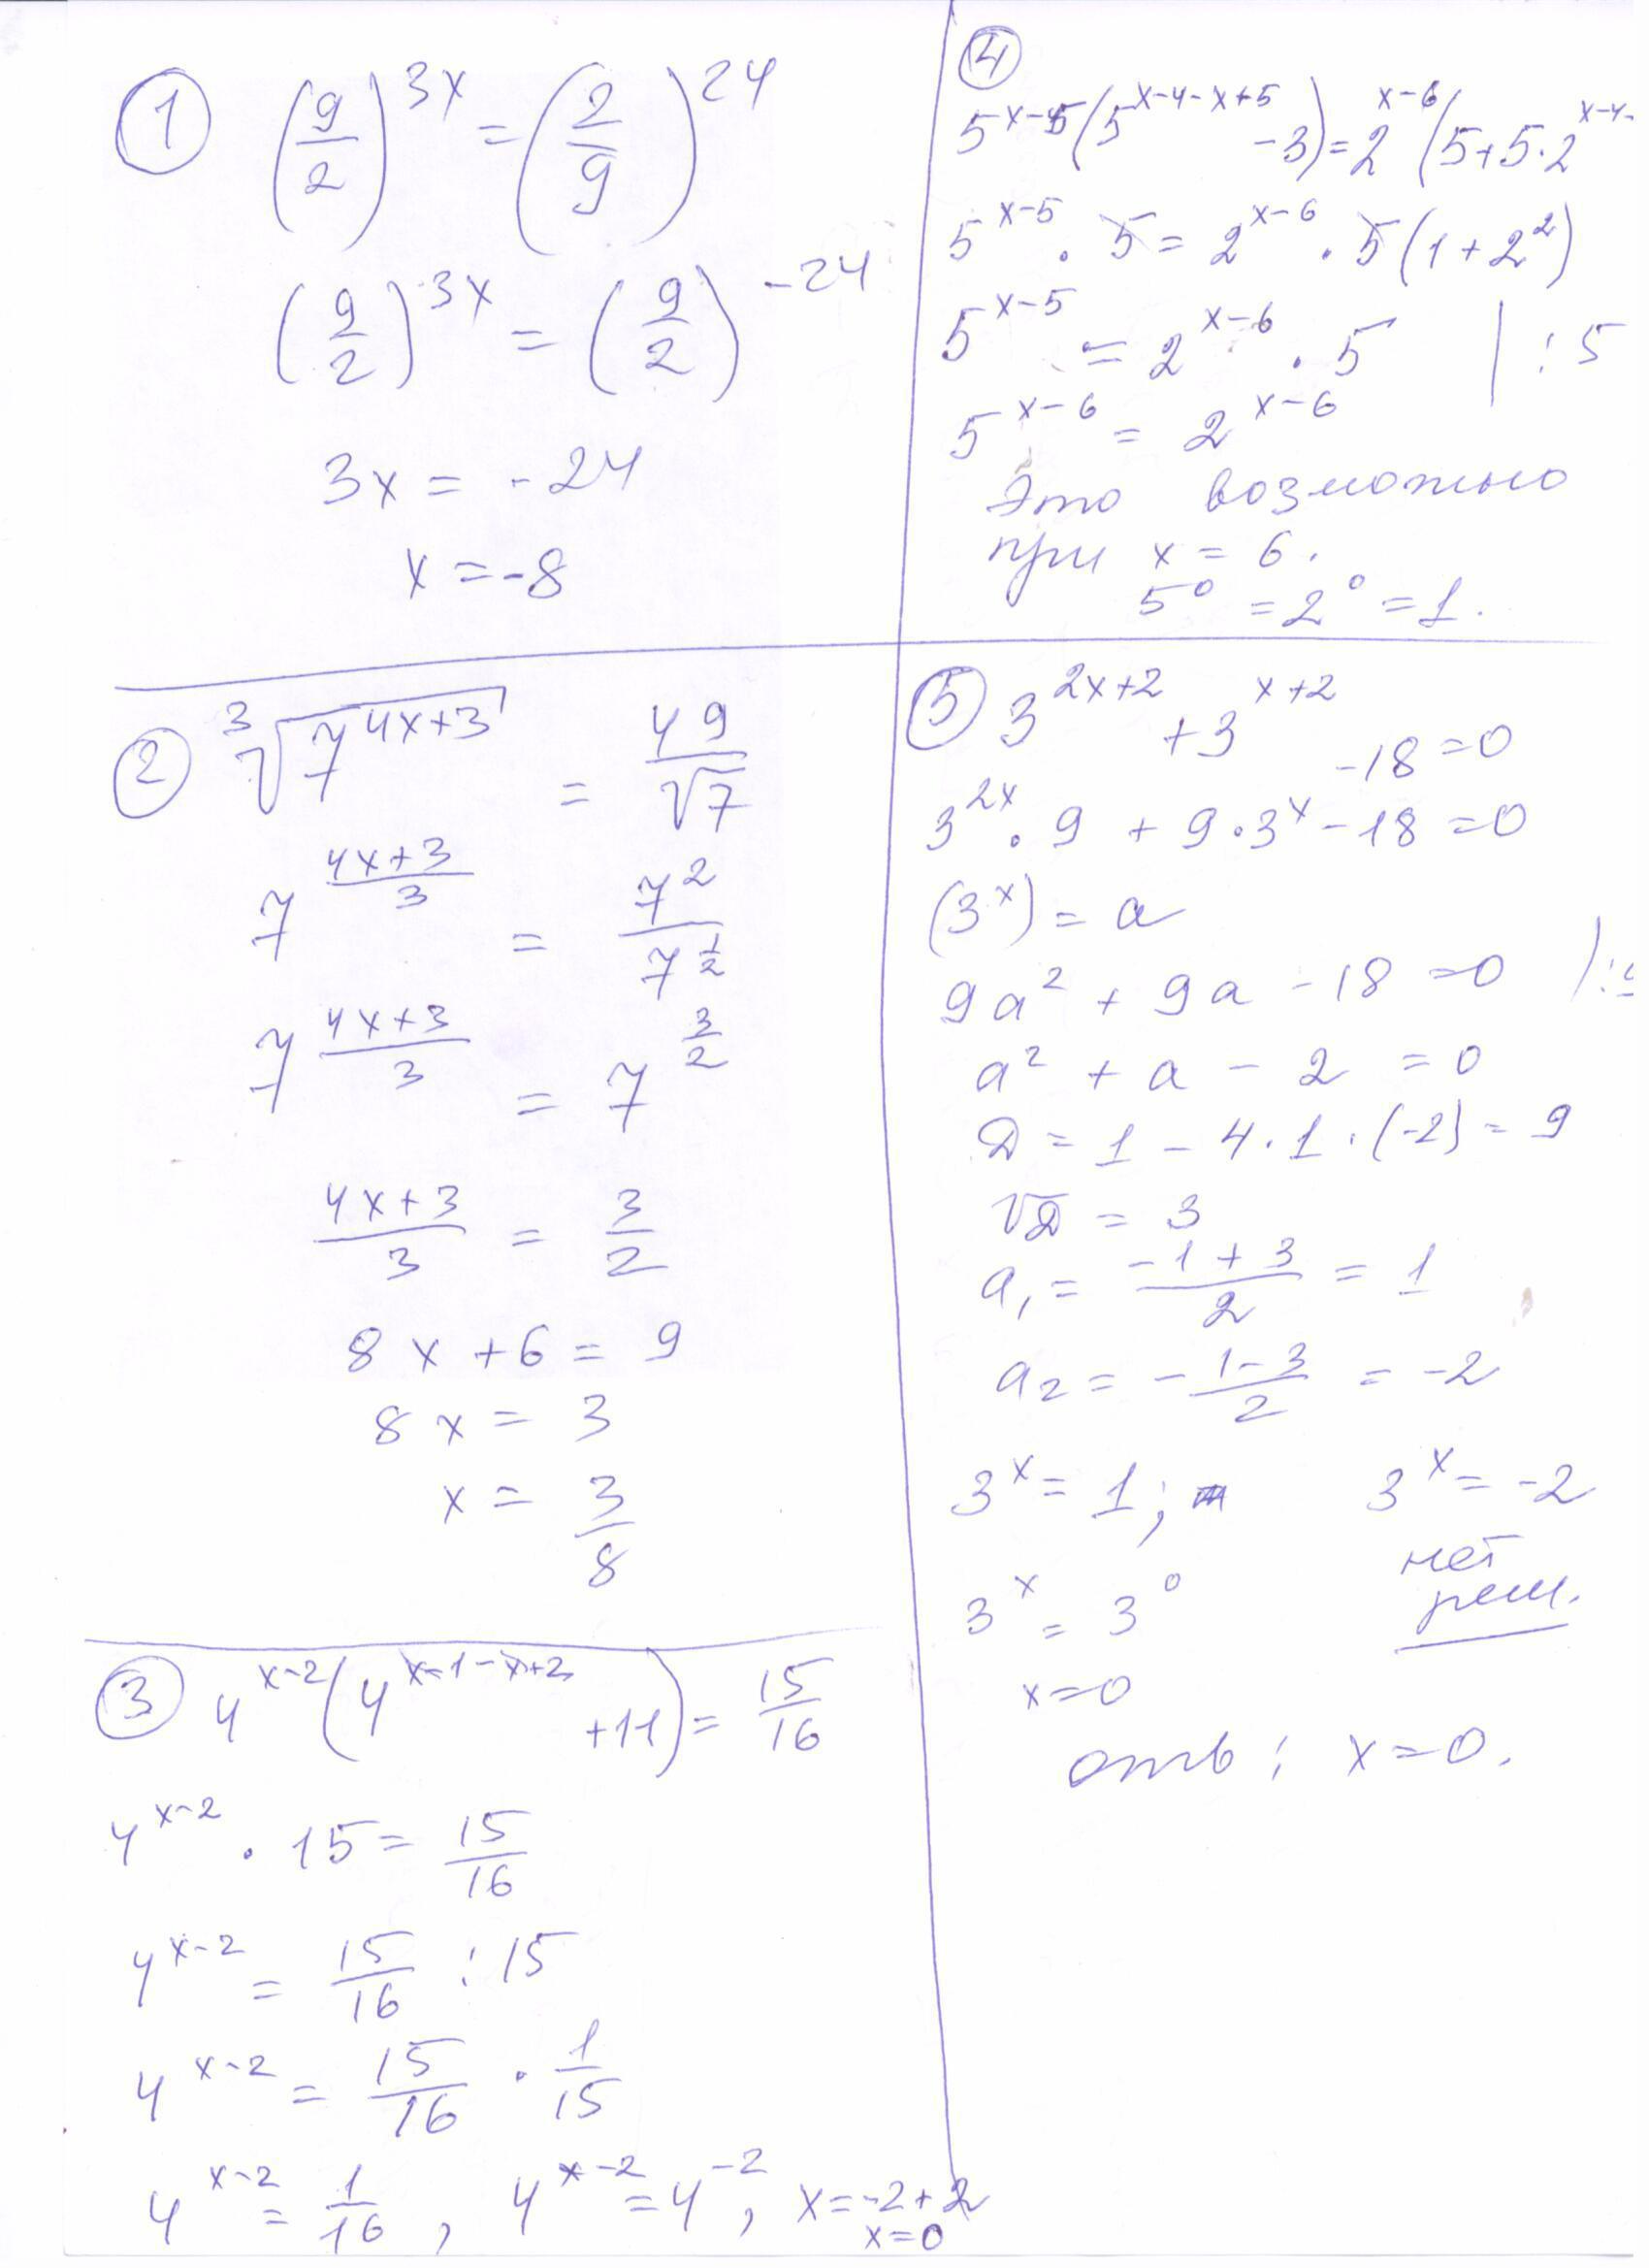 ① (9/2)^{3x} = (2/9)^{24}
(9/2)^{3x} = (9/2)^{-24}
3x = -24
x = -8
② ∛(7^{4x+3}) = 49/√7
7^{(4x+3)/3} = 7^2/7^{1/2}
7^{(4x+3)/3} = 7^{3/2}
(4x+3)/3 = 3/2
8x + 6 = 9
8x = 3
x = 3/8
③ 4^{x-2}(4^{x-1-x+2} + 11) = 15/16
4^{x-2} · 15 = 15/16
4^{x-2} = 15/16 : 15
4^{x-2} = 15/16 · 1/15
4^{x-2} = 1/16, 4^{x-2} = 4^{-2}, x = -2+2
x = 0
④
5^{x-5}(5^{x-4-x+5} - 3) = 2^{x-6}(5+5·2^{x-4-
5^{x-5} · 5 = 2^{x-6} · 5(1+2^2)
5^{x-5} = 2^{x-6} · 5 | : 5
5^{x-6} = 2^{x-6}
Это возможно
при x = 6.
5^0 = 2^0 = 1.
⑤ 3^{2x+2} + 3^{x+2} - 18 = 0
3^{2x} · 9 + 9·3^x - 18 = 0
(3^x) = a
9a^2 + 9a - 18 = 0 | :
a^2 + a - 2 = 0
D = 1 - 4·1·(-2) = 9
√D = 3
a_1 = (-1+3)/2 = 1
a_2 = -(1-3)/2 = -2
3^x = 1; 3^x = -2
нет
реш.
3^x = 3^0
x = 0
отв: x = 0.